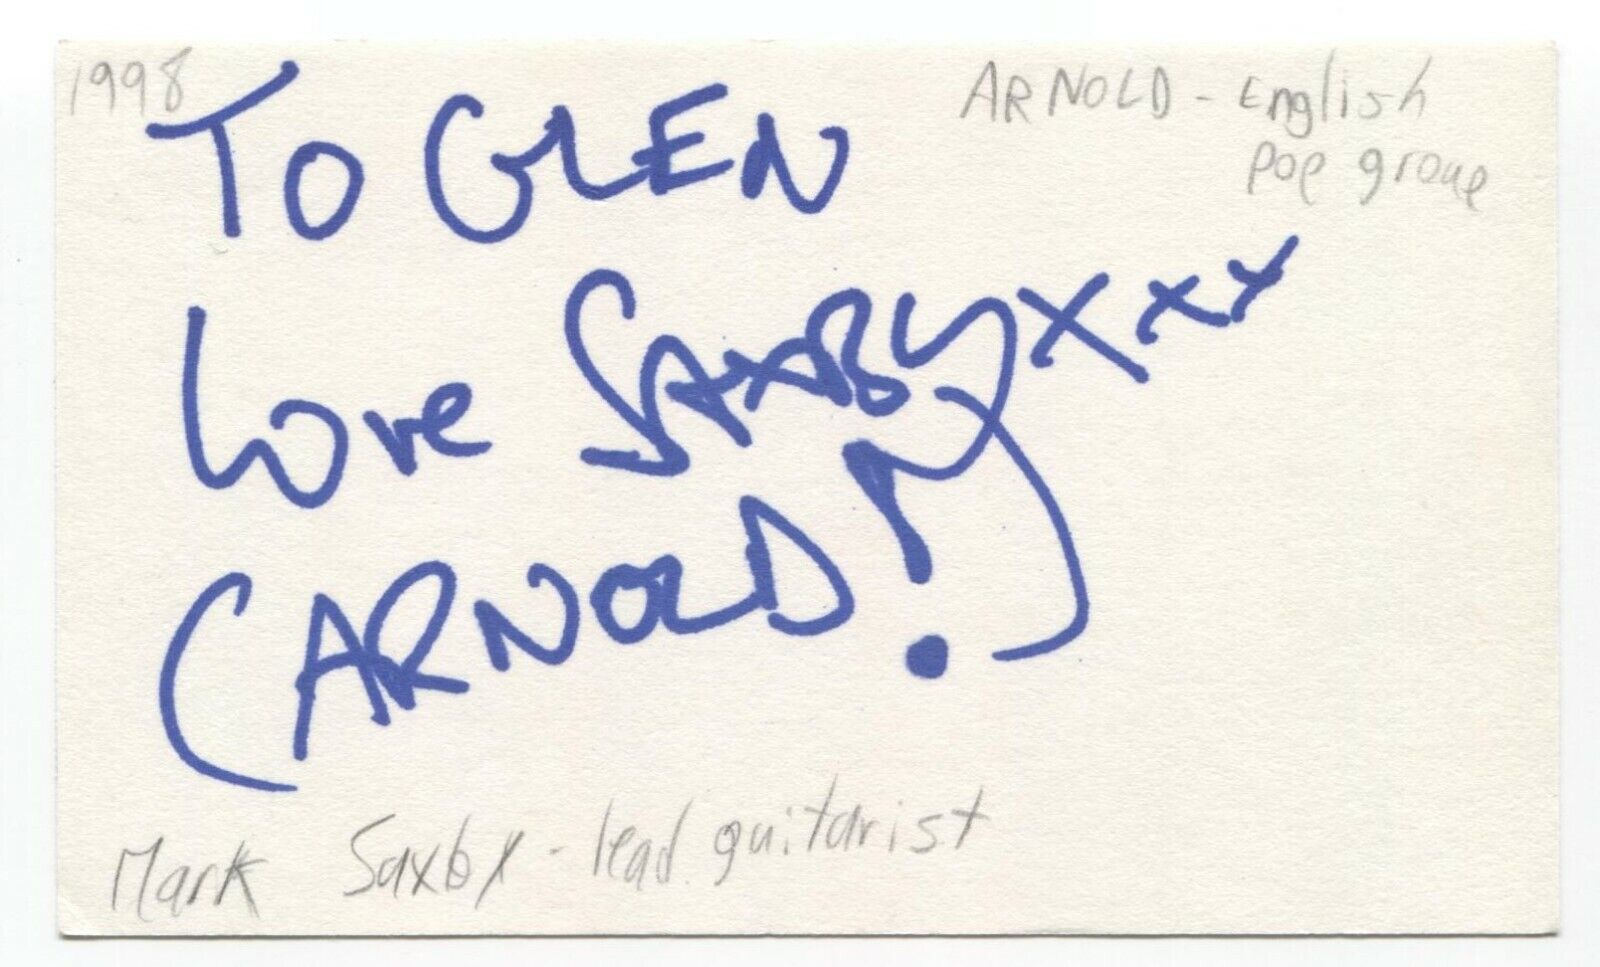 1998
ARNOLD - English
pop group
TO GLEN
Love SAXBY xxx
(ARNOLD!)
Mark Saxby - lead guitarist